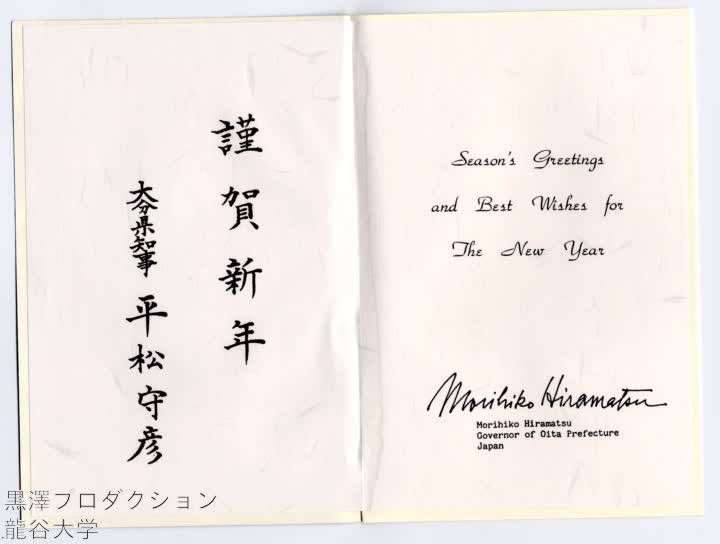 謹賀新年
大分県知事 平松守彦
Season's Greetings
and Best Wishes for
The New Year
Morihiko Hiramatsu
Morihiko Hiramatsu
Governor of Oita Prefecture
Japan
黒澤プロダクション
龍谷大学